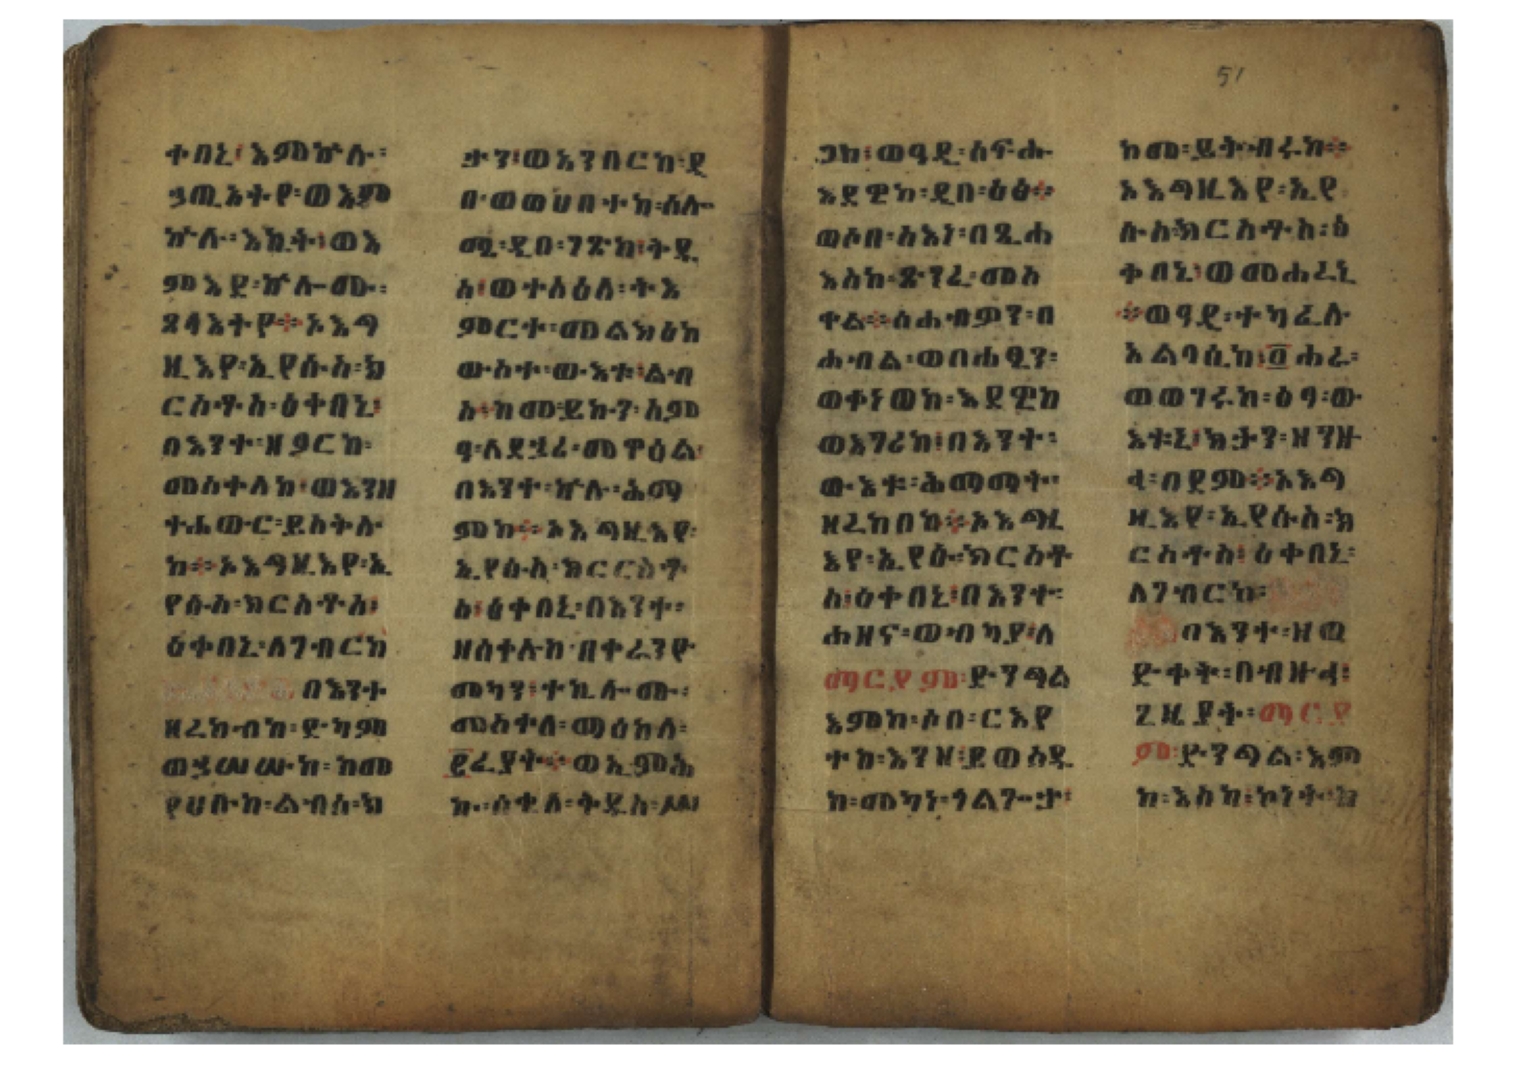 ቀበኒ፡ እምኵሉ፡
ኃጢአትየ፡ ወእም
ኵሉ፡ እኪት፡ ወእ
ምእደ፡ ኵሎሙ፡
ጸላእትየ፨ ኦእግ
ዚእየ፡ ኢየሱስ፡ ክ
ርስቶስ፡ ዕቀበኒ፡
በእንተ፡ ዘፆርከ፡
መስቀለከ፡ ወእንዘ
ተሐውር፡ ይስቅሉ
ከ፨ ኦእግዚእየ፡ ኢ
የሱስ፡ ክርስቶስ፡
ዕቀበኒ፡ ለገብርከ
በእንተ
ዘረከብከ፡ ድካም
ወኃሣሡከ፡ ከመ
የሀቡከ፡ ልብሰ፡ ክ
ታን፡ ወአንበርከ፡ ዲ
በ፡ ወወሀበተከ፡ ሰሎ
ሜ፡ ዲበ፡ ገጽከ፡ ትዩ
አ፡ ወተስዕለ፡ ትእ
ምርተ፡ መልክዕከ
ውስተ፡ ውእቱ፡ ልብ
ስ፡ ከመ፡ ይኩን፡ አም
ኃ፡ ለደኃሪ፡ መዋዕል
በእንተ፡ ኵሉ፡ ሕማ
ምከ፨ ኦእግዚእየ፡
ኢየሱስ፡ ክርርስቶ
ስ፡ ዕቀበኒ፡ በእንተ፡
ዘሰቀሉከ፡ በቀራንዮ
መካን፡ ተኪሎሙ፡
መስቀለ፡ ማዕከለ፡
፪ፈያት፨ ወኢምሕ
ኩ፡ ሰቂለ፡ ቅዱስ፡ ሥጋ
ጋከ፡ ወዓዲ፡ ሰፍሑ
እደዊከ፡ ዲበ፡ ዕፅ፨
ወሶበ፡ ስእነ፡ በጺሐ
እስከ፡ ጽንፈ፡ መስ
ቀል፨ ሰሐብዎን፡ በ
ሐብል፡ ወበሐፂን፡
ወቀነወከ፡ እደዊከ
ወእገሪከ፡ በእንተ፡
ውእቱ፡ ሕማማት፡
ዘረከበከ፨ ኦእግዚ
እየ፡ ኢየሱ፡ ክርስቶ
ስ፡ ዕቀበኒ፡ በእንተ፡
ሐዘና፡ ወብካያ፡ ለ
ማርያም፡ ድንግል
እምከ፡ ሶበ፡ ርእየ
ተከ፡ እንዘ፡ ይወስዱ
ከ፡ መካነ፡ ጎልጎታ፡
ከመ፡ ይትብሩክ፨
ኦእግዚእየ፡ ኢየ
ሱስ፡ ክርስቶስ፡ ዕ
ቀበኒ፡ ወመሐረኒ
፨ወዓዲ፡ ተካፈሉ
አልባሲከ፡ ፬ሐራ፡
ወወገሩከ፡ ዕፃ፡ ው
እቱኒ፡ ክታን፡ ዘንዙ
ኅ፡ በደም፨ ኦእግ
ዚእየ፡ ኢየሱስ፡ ክ
ርስቶስ፡ ዕቀበኒ፡
ለገብርከ፡
በእንተ፡ ዘወ
ድቀት፡ በብዙኅ፡
ጊዚያት፡ ማርያ
ም፡ ድንግል፡ እም
ከ፡ እስከ፡ ኮነት፡ ከ